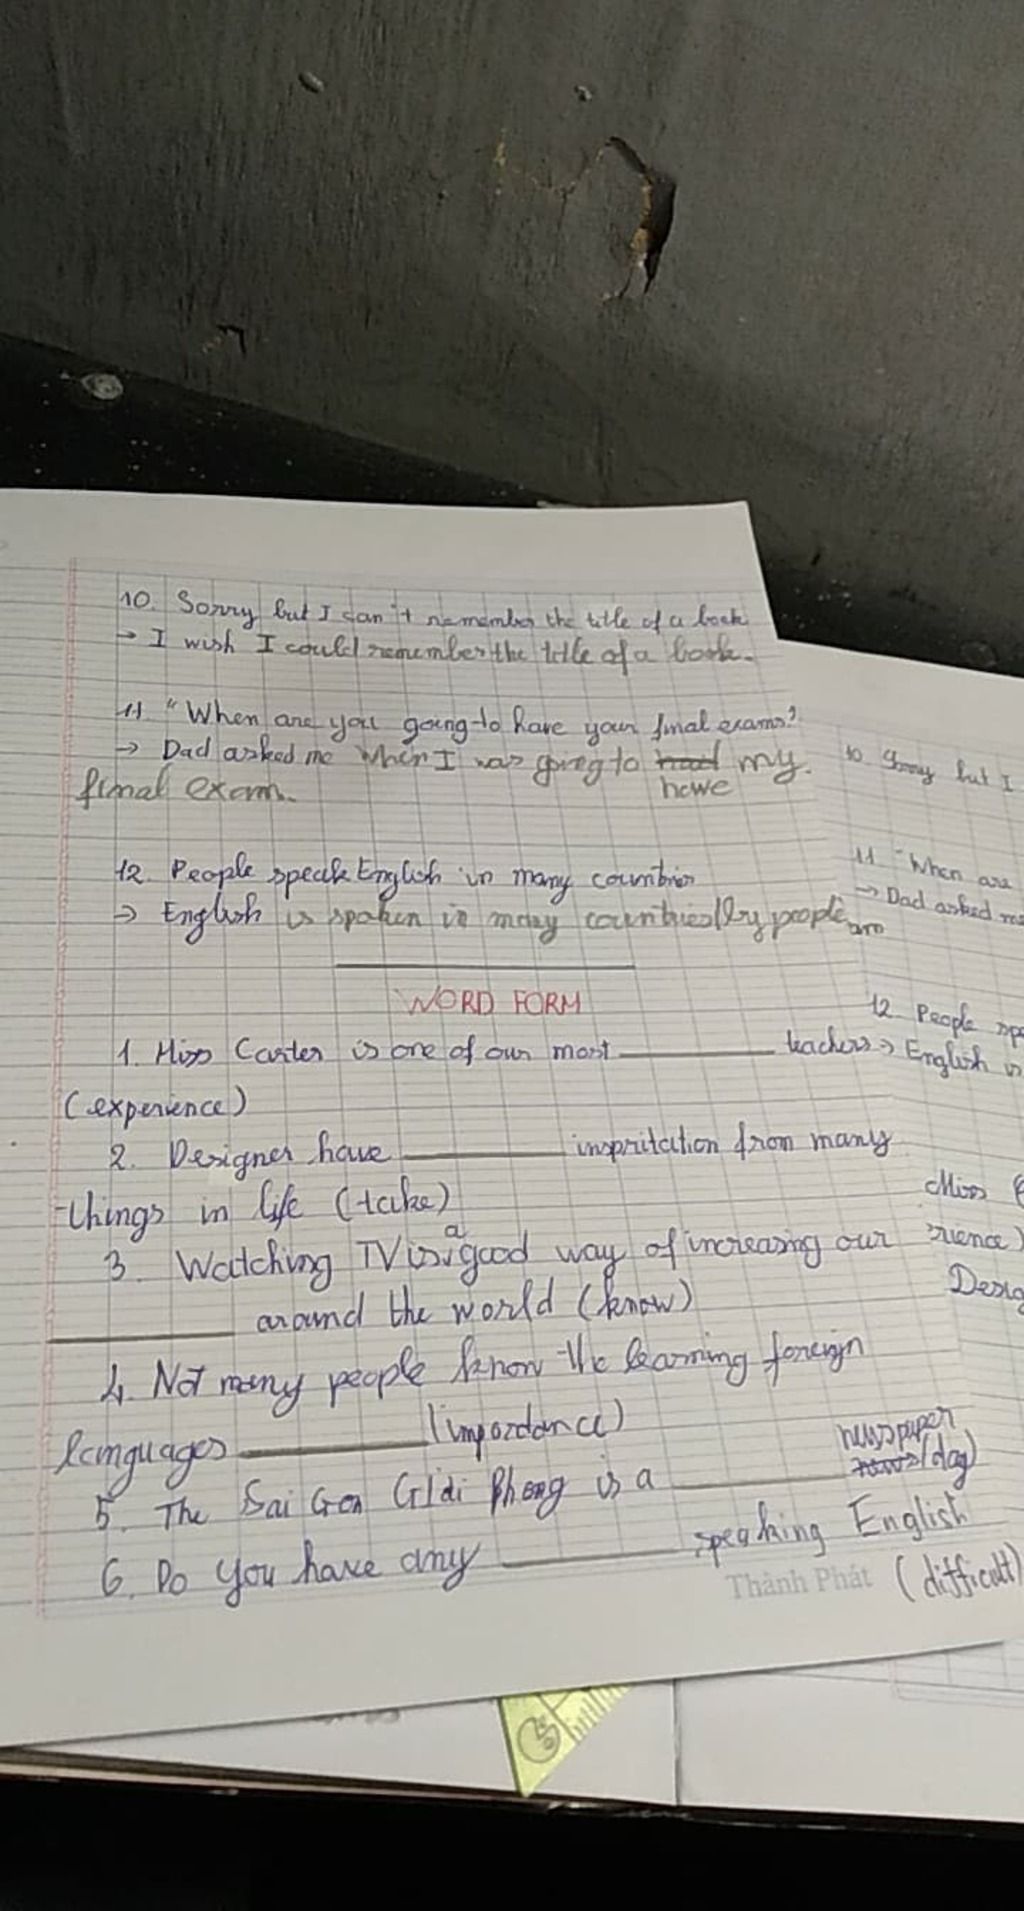 10. Sorry but I can't remember the title of a book
→ I wish I could remember the title of a book.
11. "When are you going to have your final exams?
→ Dad asked me when I was going to had my.
have
final exam.
12. People speak English in many countries
→ English is spoken in many countries by people
WORD FORM
1. Miss Carter is one of our most ________ teachers
(experience)
2. Designer have ________ inspritation from many
things in life (take)
a
3. Watching TV is good way of increasing our
________ around the world (know)
4. Not many people know the learning foreign
languages ________ (importance)
newspaper
5. The Sai Gon Giai Phong is a ________ news (day)
6. Do you have any ________ speaking English
Thành Phát (difficult)
10 Sorry but I
11 "When are
→ Dad asked me
12 People spe
→ English is
Miss C
rience)
Desig